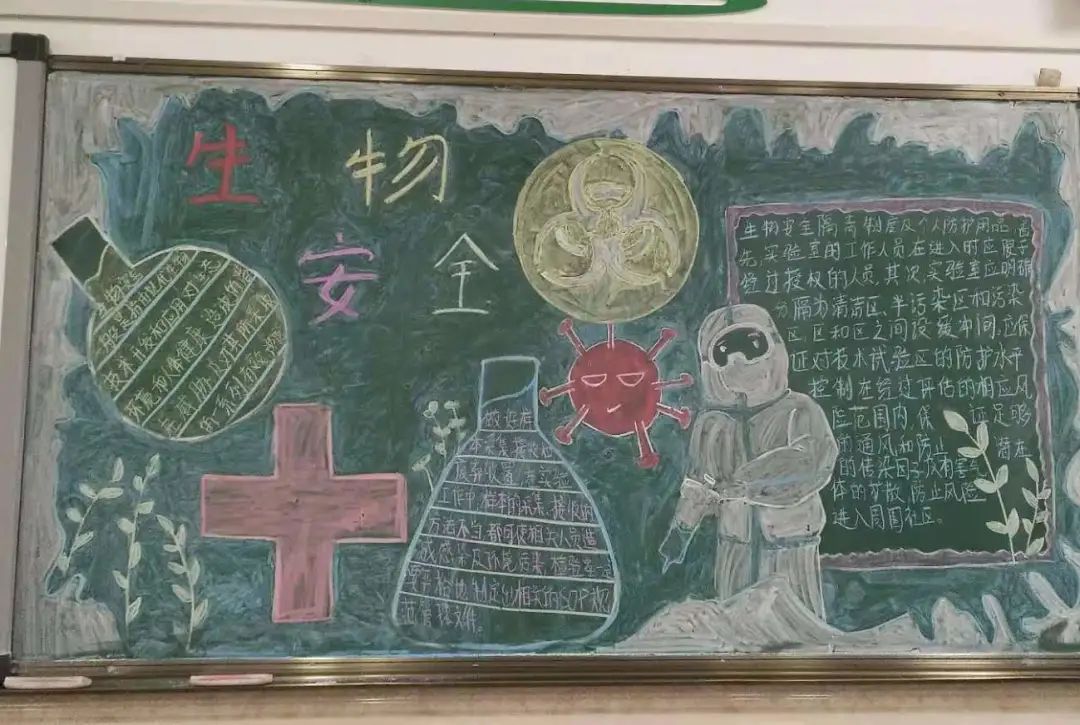 生物
安全
生物安全
一般是指由现代生物
技术开发和应用对生态
环境和人体健康造成
及对其所采取
的一系列有效
工作中，样本的采集、接收的
方法不当，都可使相关人员造
成感染及环境污染，检验
严格地制定相关的SOP规
范管理文件。
生物安全隔离物屋及个人防护用品，首
先，实验室的工作人员在进入时应服于
经过授权的人员，其次，实验室应明确
分隔为清洁区、半污染区和污染
区，区和区之间设缓冲间，应保
证对技术试验区的防护水平
控制在经过评估的相应风
险范围内，保证足够
的通风和防止潜在
的传染因子或有害气
体的扩散，防止风险
进入周围社区。